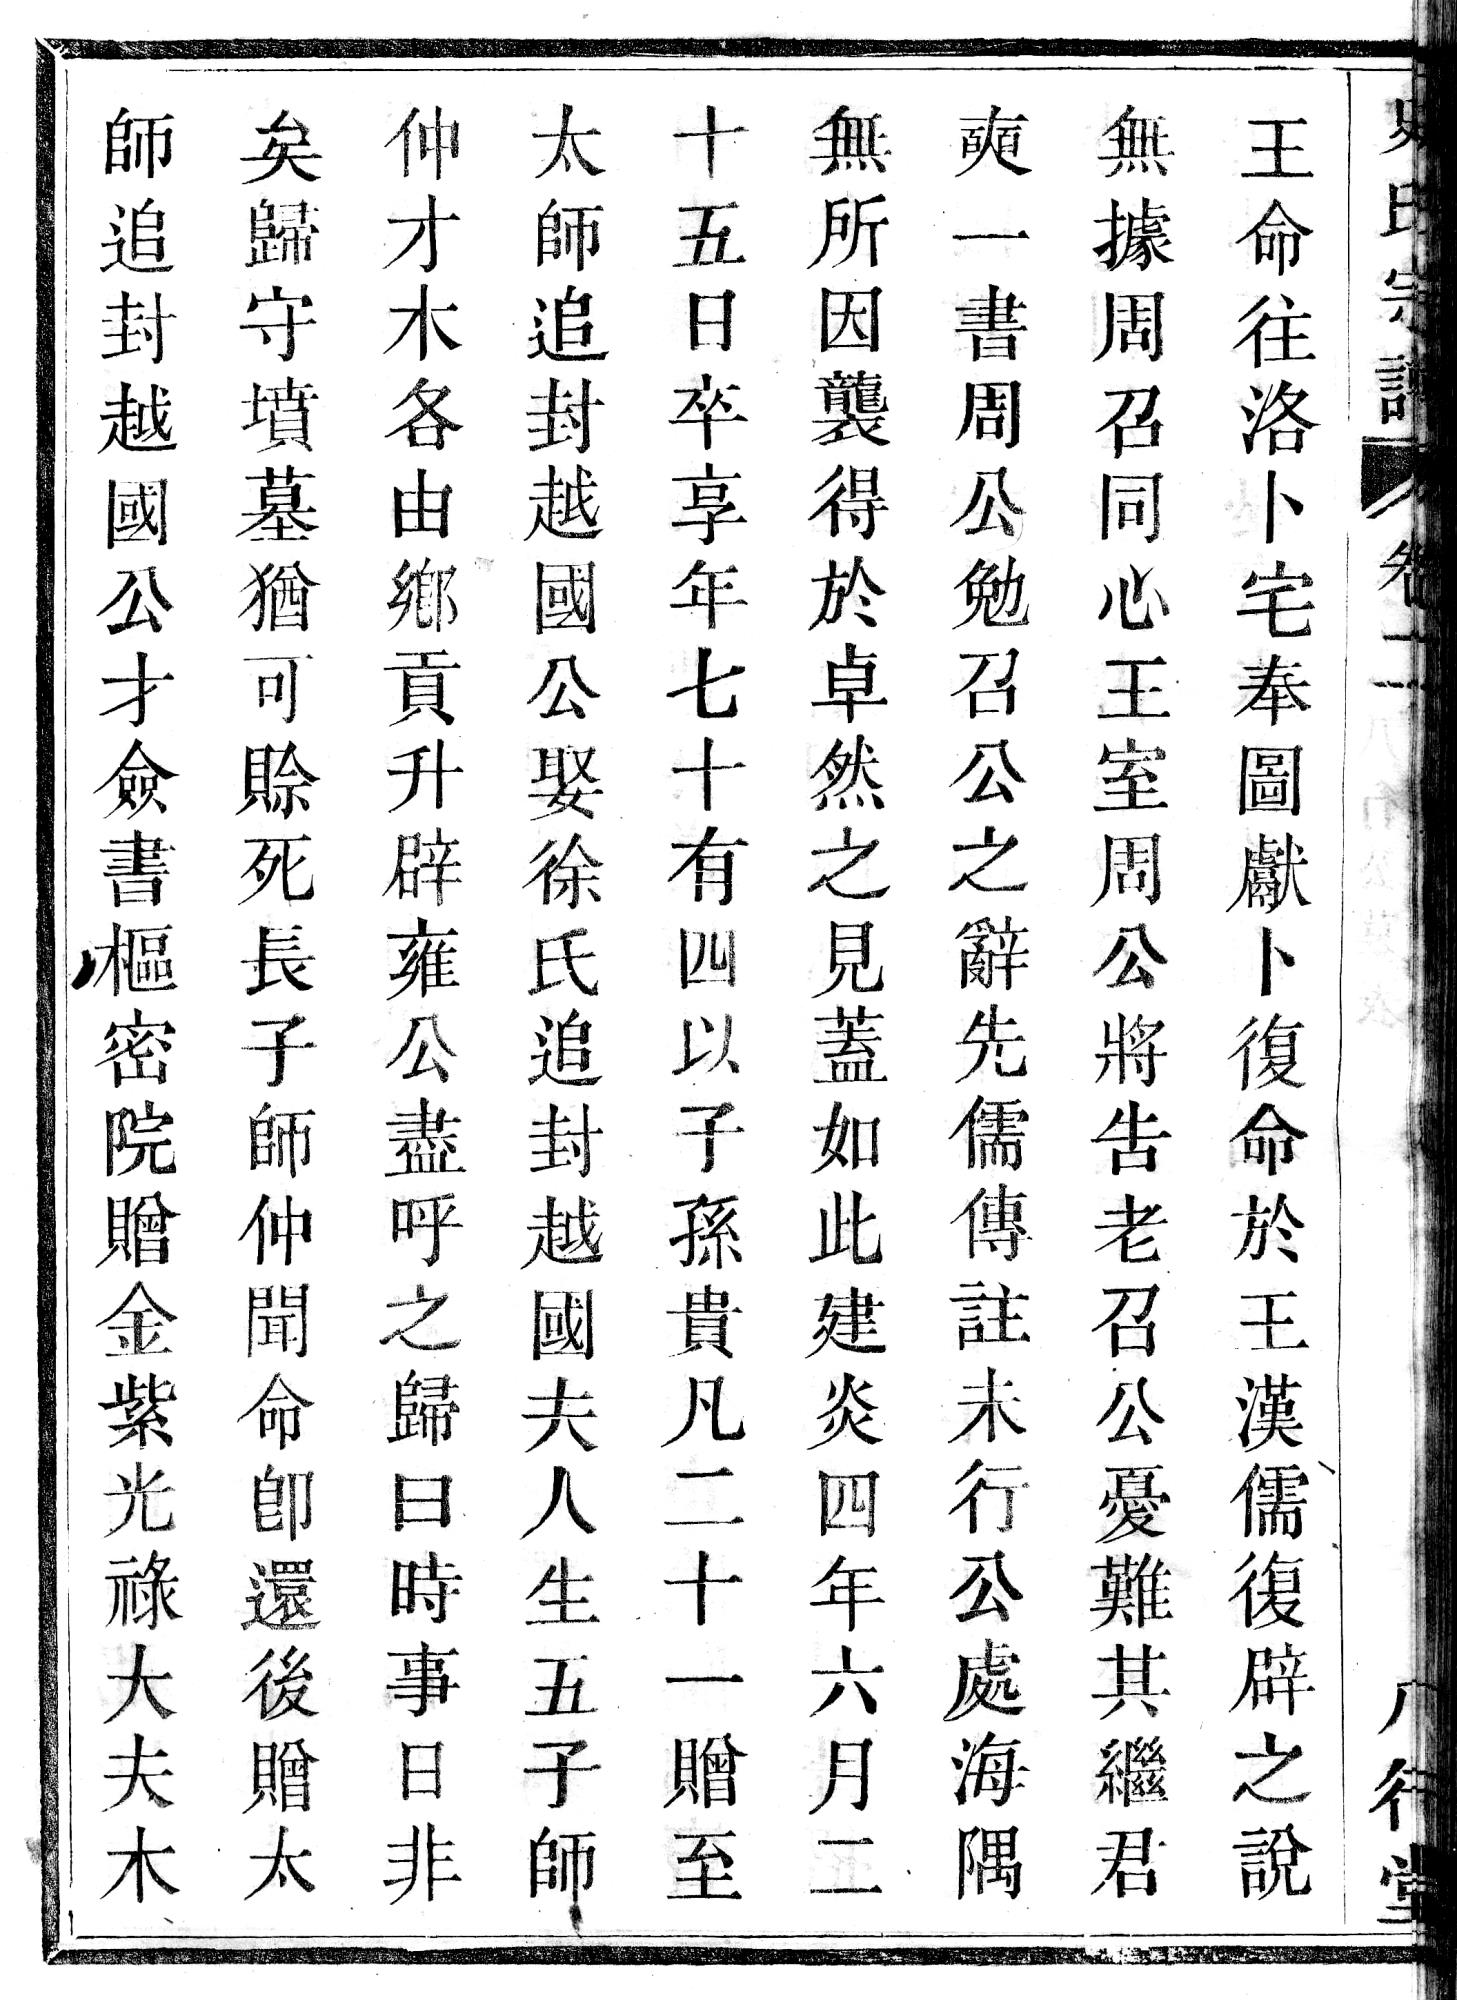 史氏宗譜 卷二 八行堂
王命往洛卜宅奉圖獻卜復命於王漢儒復辟之說
無據周召同心王室周公將告老召公憂難其繼君
奭一書周公勉召公之辭先儒傳註未行公處海隅
無所因襲得於卓然之見蓋如此建炎四年六月二
十五日卒享年七十有四以子孫貴凡二十一贈至
太師追封越國公娶徐氏追封越國夫人生五子師
仲才木各由鄉貢升辟雍公盡呼之歸曰時事日非
矣歸守墳墓猶可賒死長子師仲聞命卽還後贈太
師追封越國公才僉書樞密院贈金紫光祿大夫木